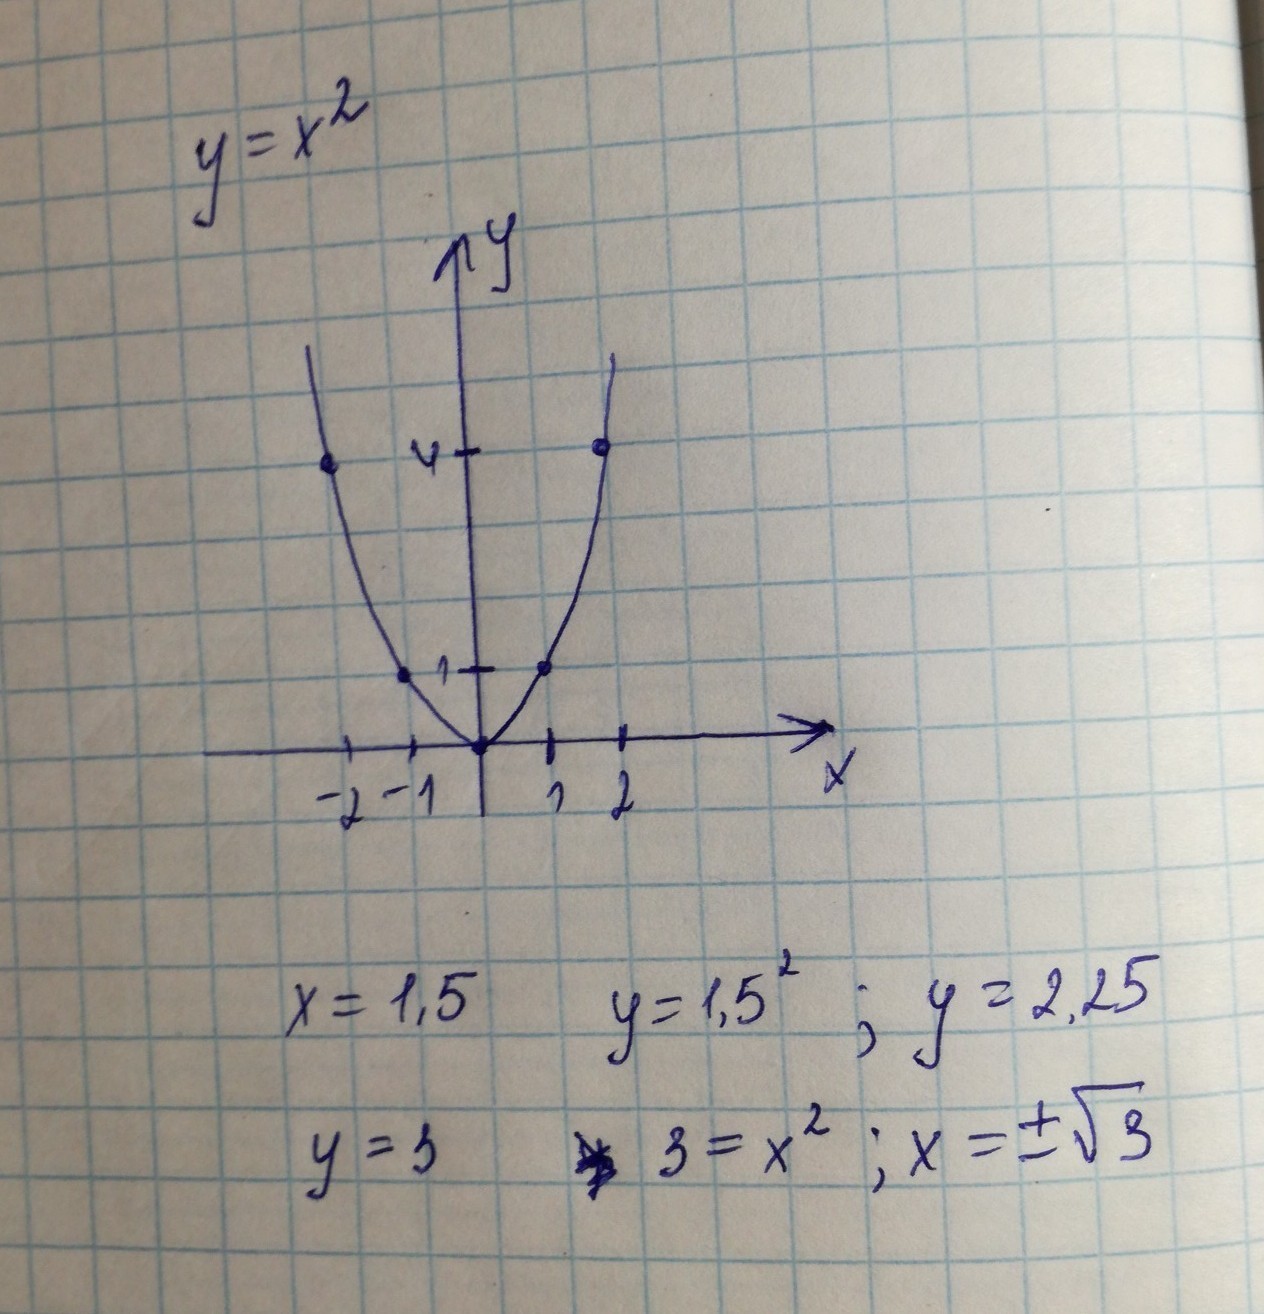 y = x²
y
4
1
-2 -1 1 2 x
x = 1,5 y = 1,5² ; y = 2,25
y = 3 3 = x² ; x = ±√3